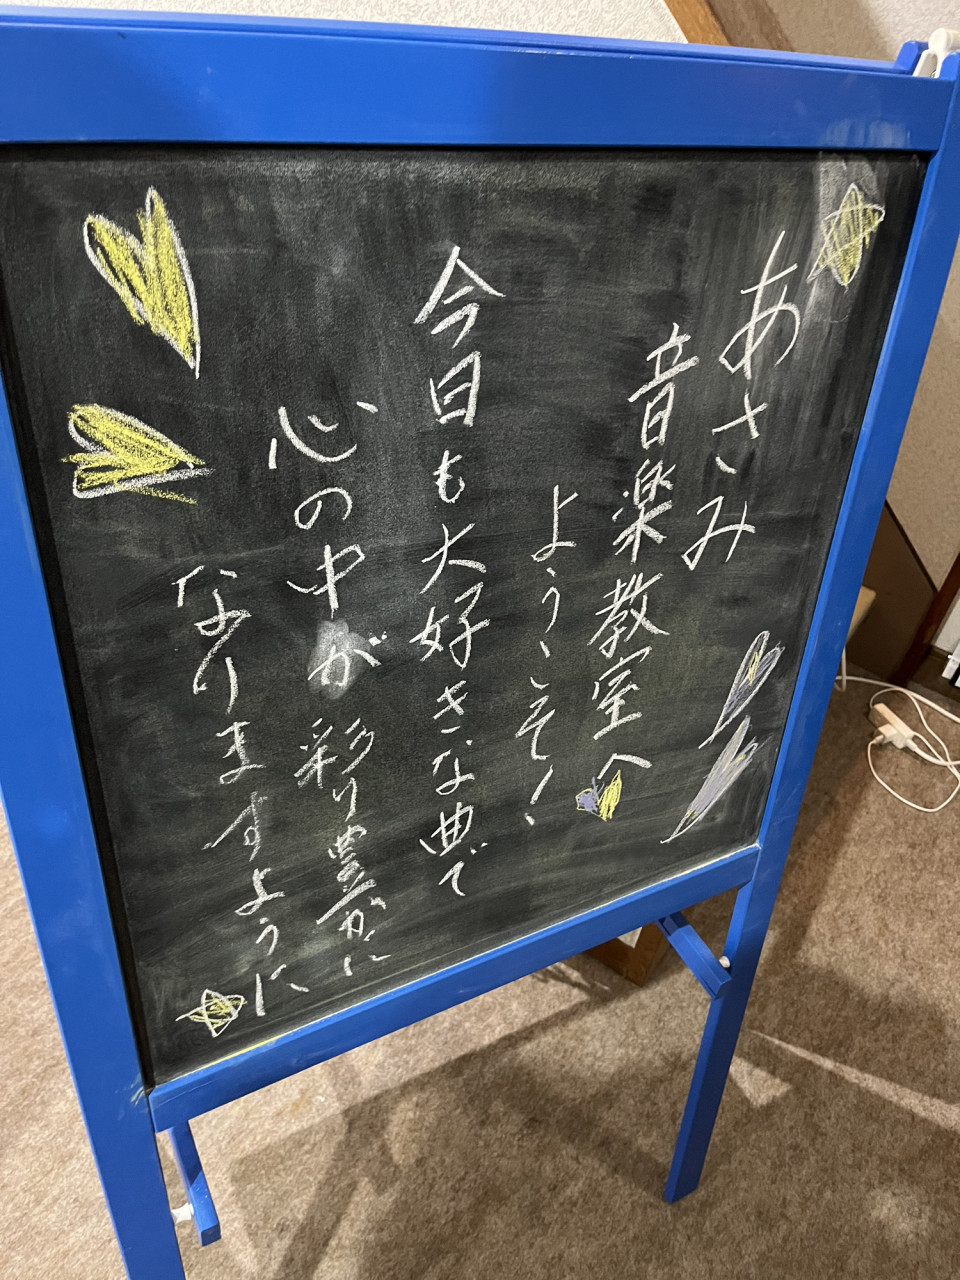 あさみ
音楽教室へ
ようこそ!
今日も大好きな曲で
心の中が彩り豊かに
なりますように